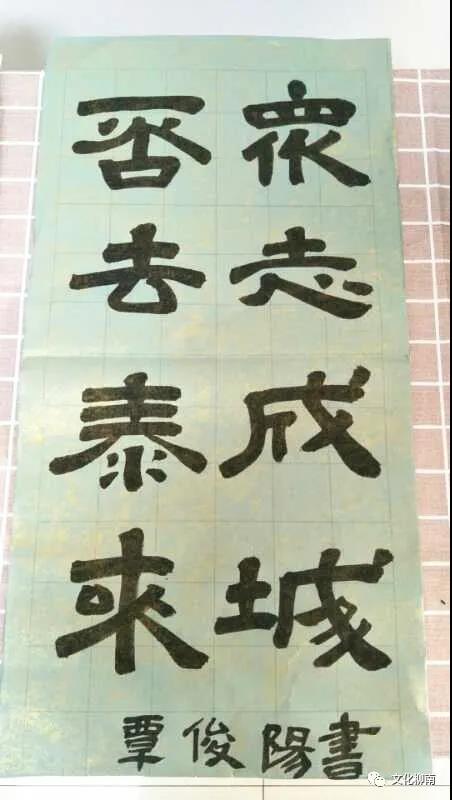 眾志成城
否去泰來
覃俊陽書
文化柳南